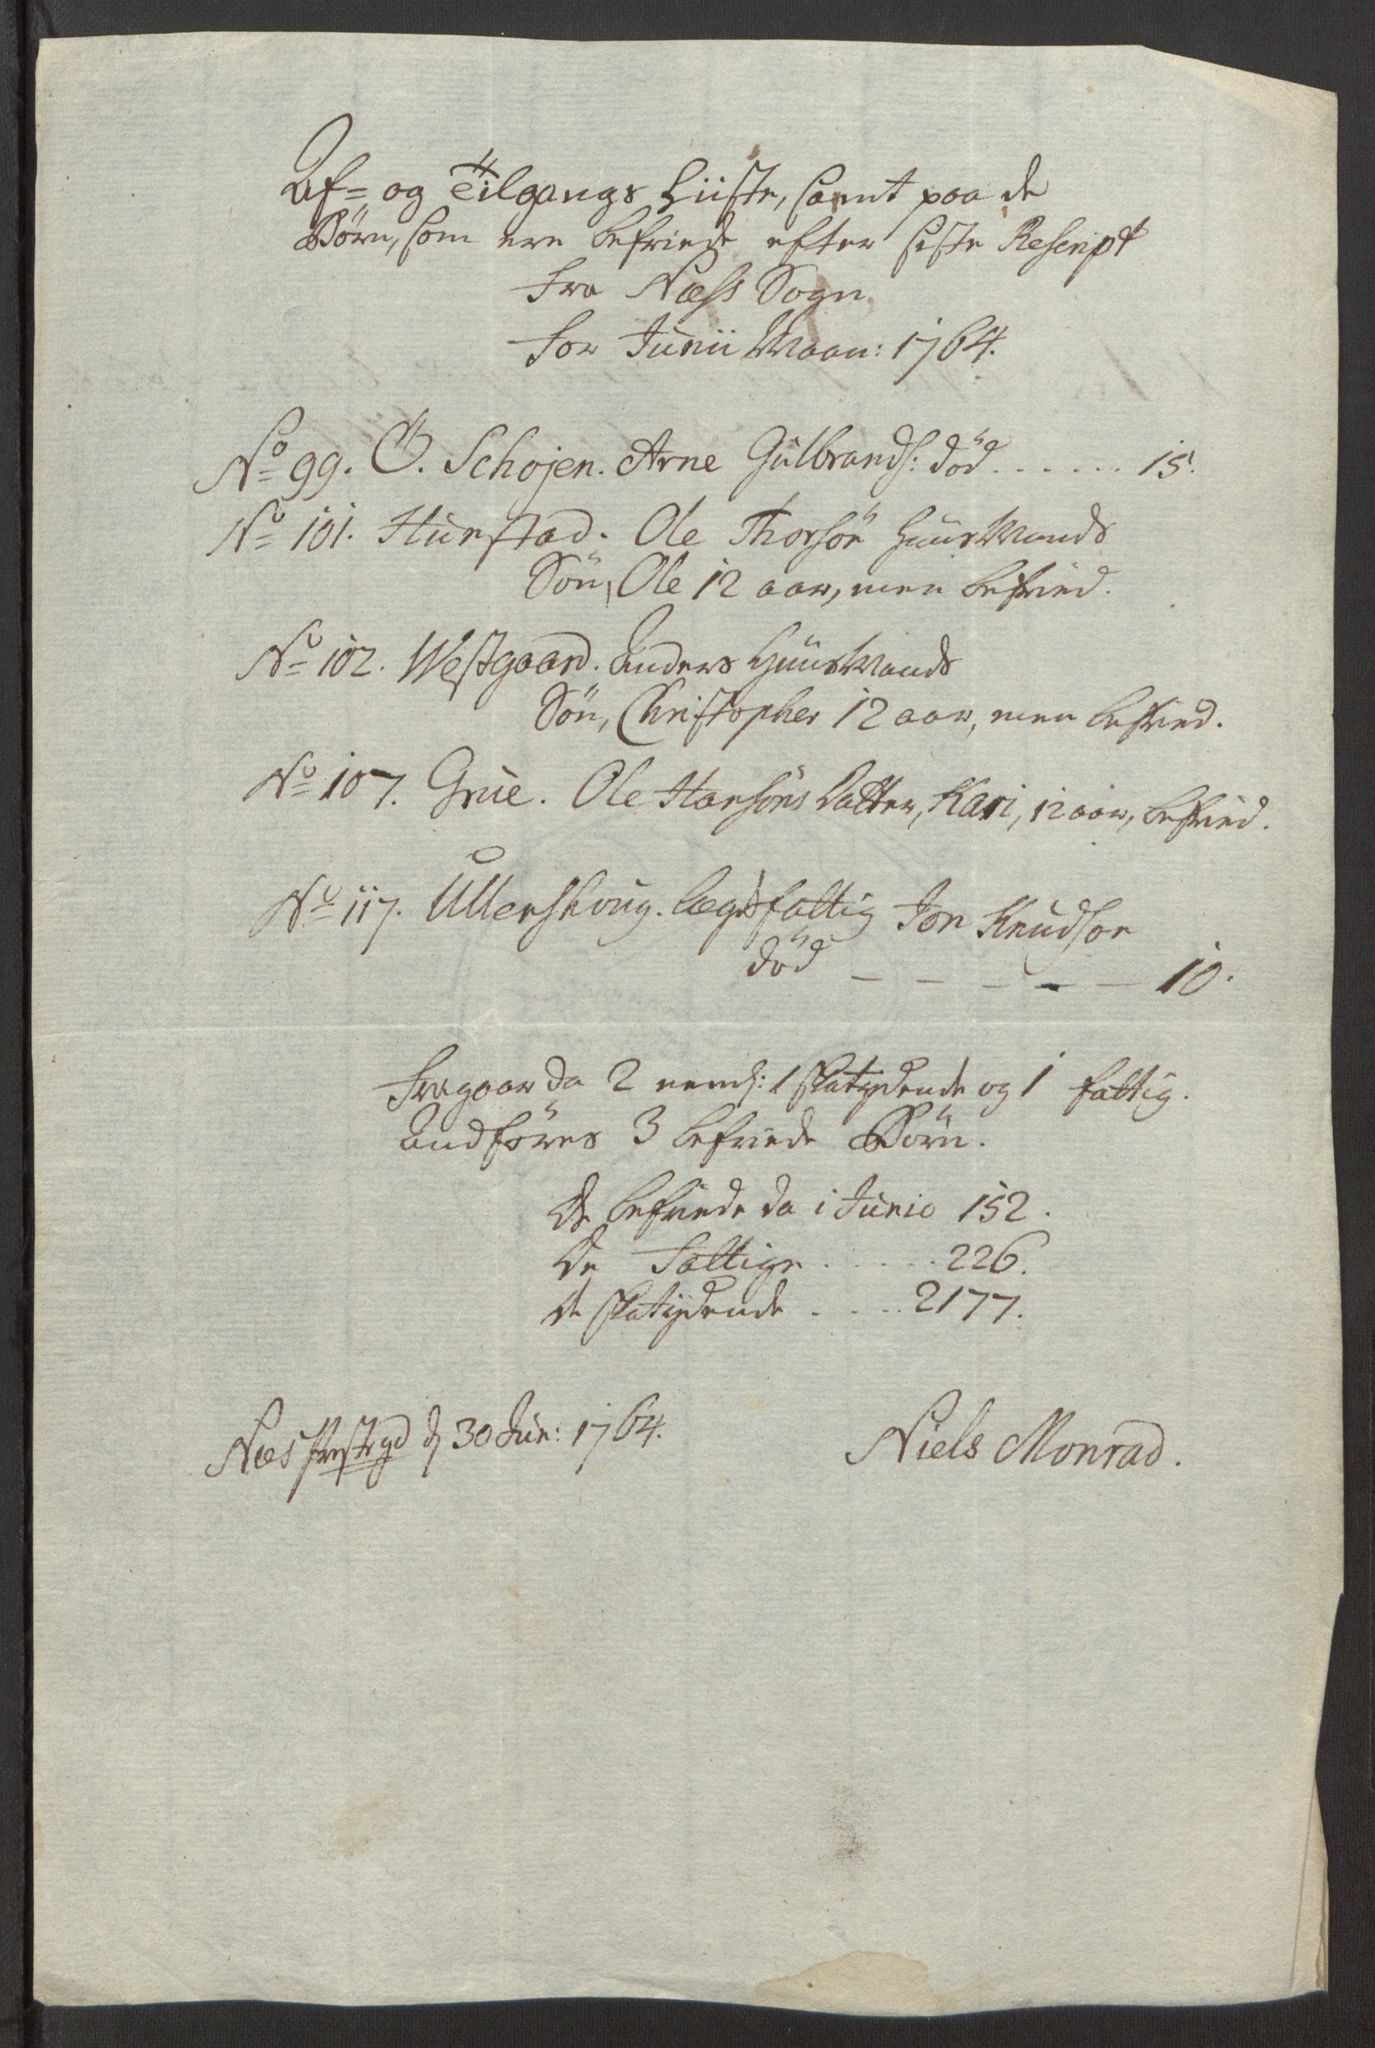 Af- og Tilgangs Liiste, samt paa de
Börn, som ere befriede efter siste Rescript
fra Næss Sogn
for Junii Maan: 1764.
No 99. Ö. Schojen. Arne Gulbrands: död . . . . . . 15.
No 101. Hunstad. Ole Thorsön HuusMands
Sön, Ole 12 aar, men befried.
No 102. Westgaard. Anders HuusMands
Sön, Christopher 12 aar, men befried.
No 107. Grue. Ole Hansöns Datter, Kari, 12 aar, befried.
No 117. Ullershoug. lægdfattig Jon Knudson
död - - - - - 10.
Fragaar da 2 neml: 1 skatydende og 1 fattig.
Andföres 3 befriede Börn.
De befriede da i Junio 152.
De Fattige . . . . . 226.
de skatydende . . . . 2177.
Næs Præstegd d 30 Jun: 1764.
Niels Monrad.